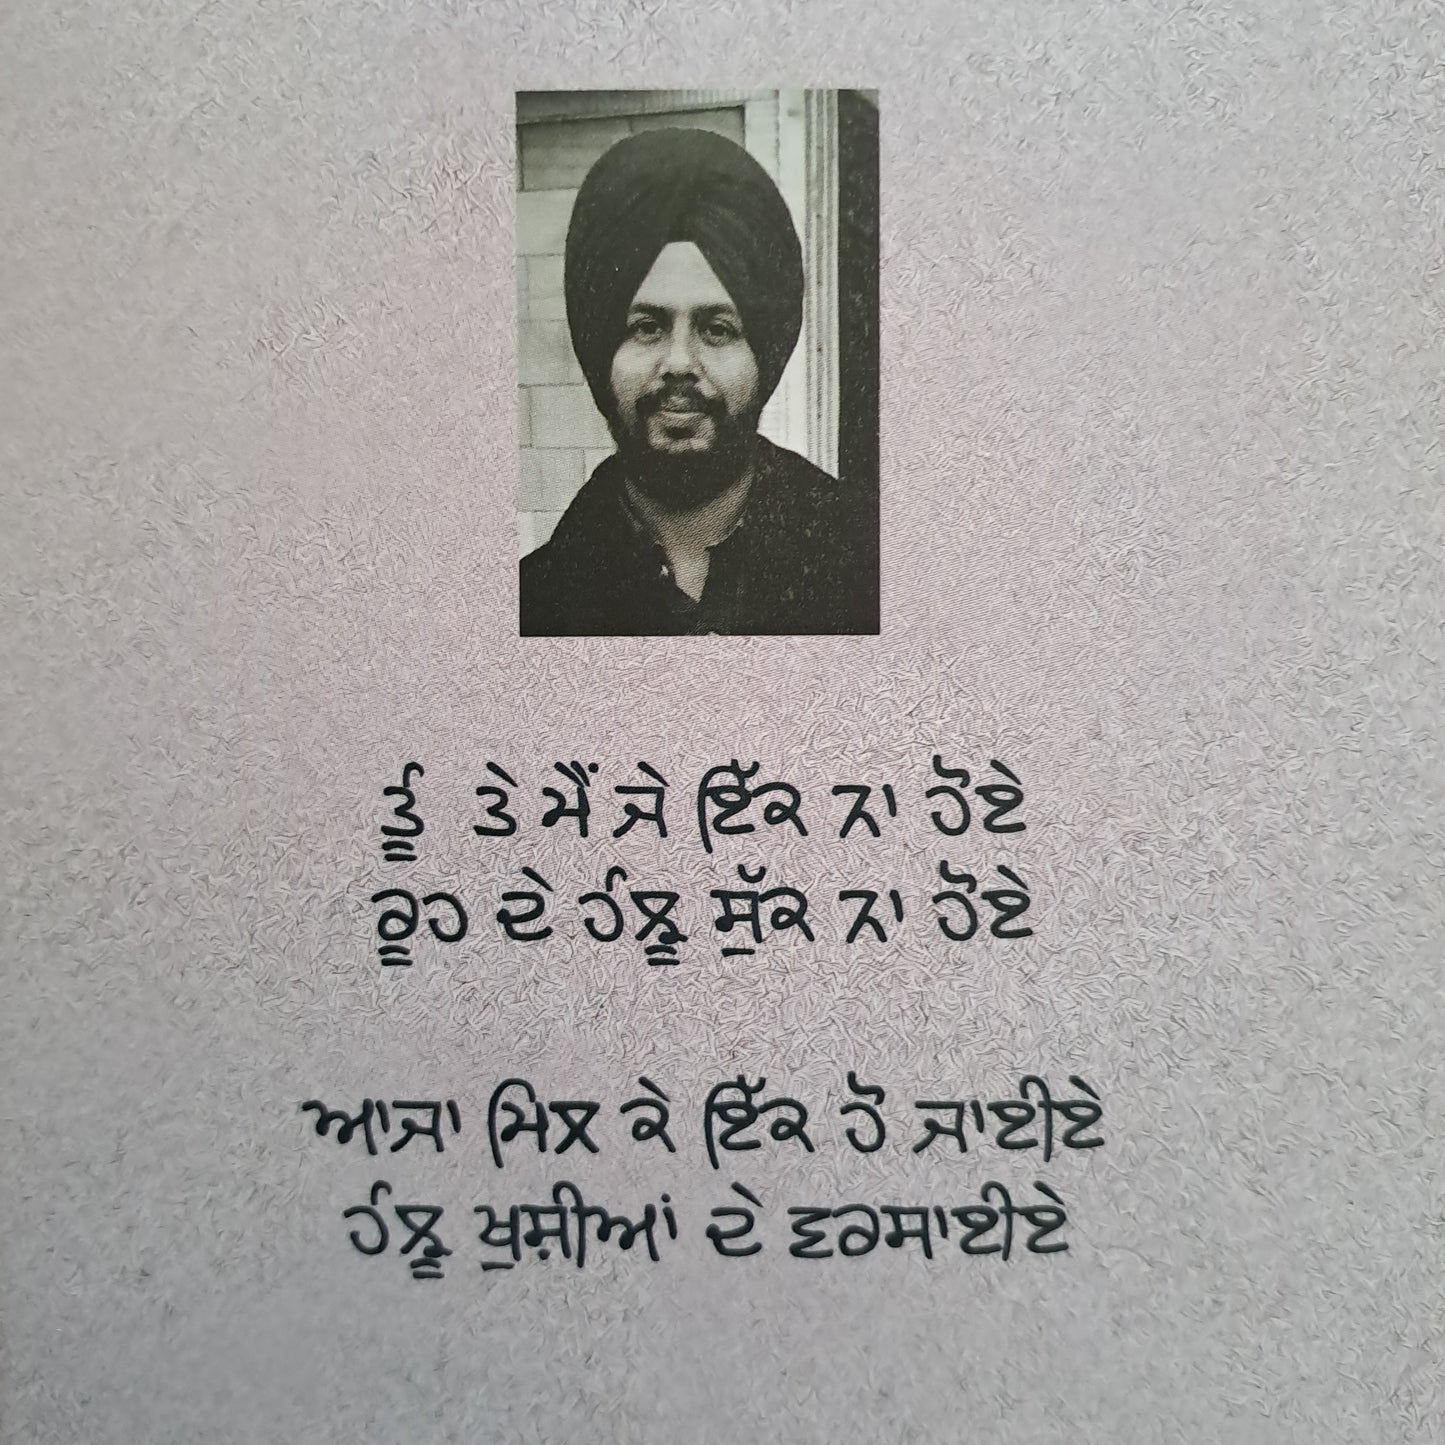 ਤੂੰ ਤੇ ਮੈਂ ਜੇ ਇੱਕ ਨਾ ਹੋਏ
ਰੂਹ ਦੇ ਹੰਝੂ ਸੁੱਕ ਨਾ ਹੋਏ
ਆਜਾ ਮਿਲ ਕੇ ਇੱਕ ਹੋ ਜਾਈਏ
ਹੰਝੂ ਖੁਸ਼ੀਆਂ ਦੇ ਵਰਸਾਈਏ